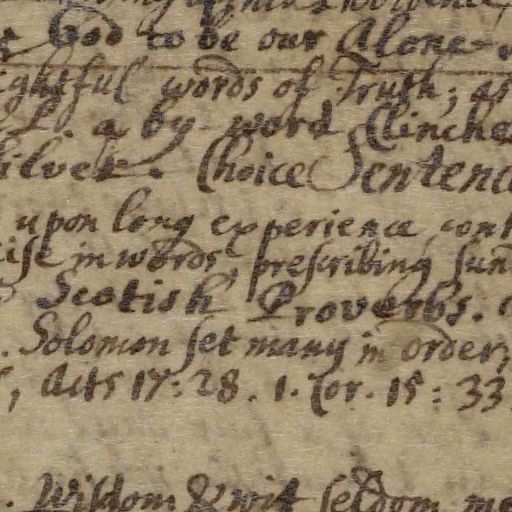 God to be our Alone
ightful words of Truth; as
a by-word Clinche
ilver. Choice Sentenc
upon long experience, cont
ise in words, prescribing sun
Scotish Proverbs.
. Solomon set many in order;
, Acts 17:28. 1. Cor. 15:33
. Wisdom & wit seldom me